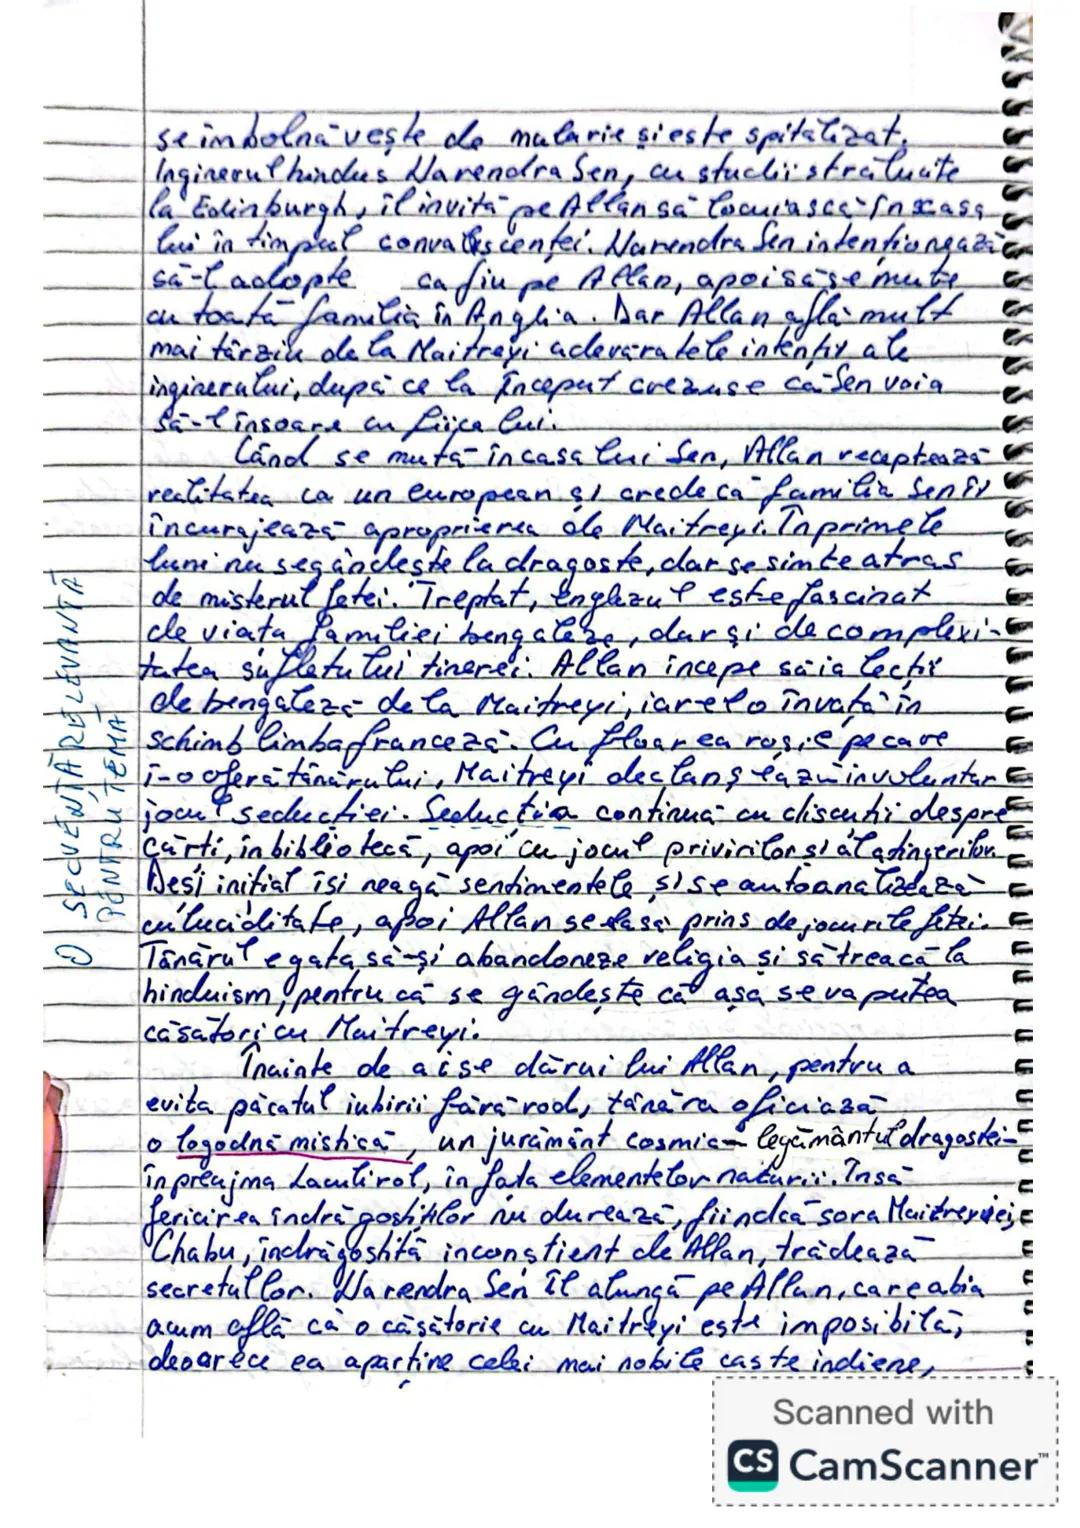 se îmbolnăvește de malarie și este spitalizat.
Inginerul hindus Narendra Sen, cu studii strălucite
la Edinburgh, îl invită pe Allan să locuiască în casa
lui în timpul convalescenței. Narendra Sen intenționează
să-l adopte ca fiu pe Allan, apoi să se mute
cu toată familia în Anglia. Dar Allan află mult
mai târziu de la Maitreyi adevăratele intenții ale
inginerului, după ce la început crezuse că Sen voia
să-l însoare cu fiica lui.
Când se mută în casa lui Sen, Allan receptează
realitatea ca un european și crede că familia Sen îi
încurajează aproprierea de Maitreyi. În primele
luni nu se gândește la dragoste, dar se simte atras
de misterul fetei. Treptat, englezul este fascinat
de viața familiei bengaleze, dar și de complexi-
tatea sufletului tinerei. Allan începe să ia lecții
de bengaleză de la Maitreyi, iar el o învață în
schimb limba franceză. Cu floarea roșie pe care
i-o oferă tânărului, Maitreyi declanșează involuntar
jocul seducției. Seducția continuă cu discuții despre
cărți, în bibliotecă, apoi cu jocul privirilor și al atingerilor.
Deși inițial își neagă sentimentele și se autoanalizează
cu luciditate, apoi Allan se lasă prins de jocurile fetei.
Tânărul e gata să-și abandoneze religia și să treacă la
hinduism, pentru că se gândește că așa se va putea
căsători cu Maitreyi.
Înainte de a i se dărui lui Allan, pentru a
evita păcatul iubirii fără rod, tânăra oficiază
o logodnă mistică, un jurământ cosmic – legământul dragostei –
în preajma Lacurilor, în fața elementelor naturii. Însă
fericirea îndrăgostiților nu durează, fiindcă sora Maitreyiei,
Chabu, îndrăgostită inconștient de Allan, trădează
secretul lor. Narendra Sen îl alungă pe Allan, care abia
acum află că o căsătorie cu Maitreyi este imposibilă,
deoarece ea aparține celei mai nobile caste indiene,
1) SECVENȚĂ RELEVANTĂ
PENTRU TEMĂ
Scanned with
CS CamScanner™